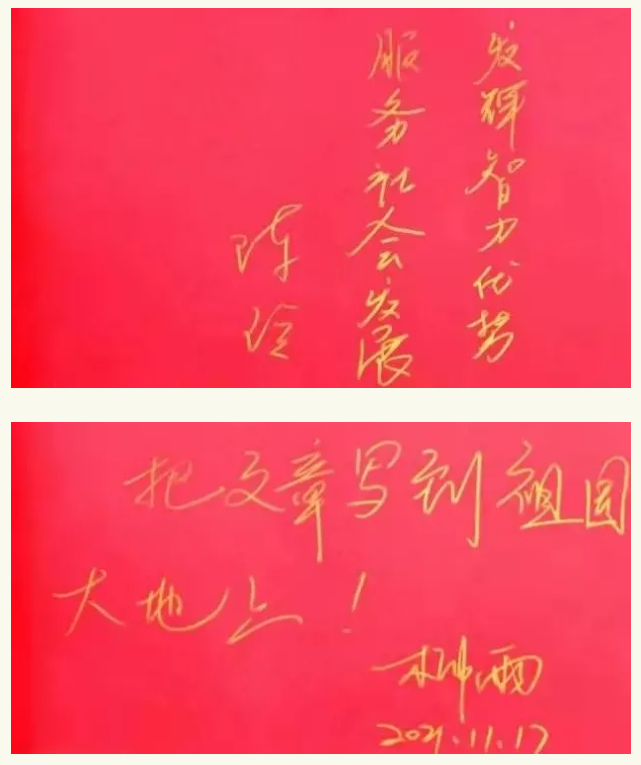 发挥智力优势
服务社会发展
陈玲
把文章写到祖国
大地上！
2021.11.17